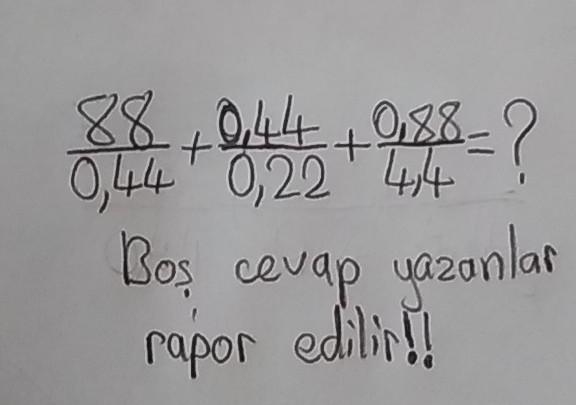 88/0,44 + 0,44/0,22 + 0,88/4,4 = ?
Boş cevap yazanlar
rapor edilir!!